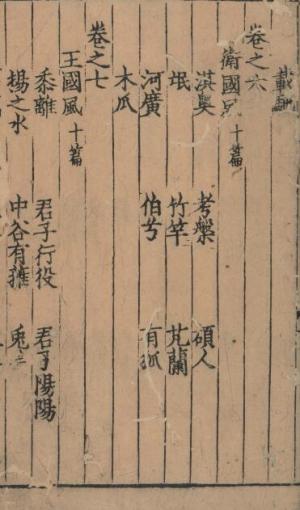 載馳
卷之六
衛國風 十篇
淇奧 考槃 碩人
氓 竹竿 芄蘭
河廣 伯兮 有狐
木瓜
卷之七
王國風 十篇
黍離 君子行役 君子陽陽
揚之水 中谷有蓷 兔